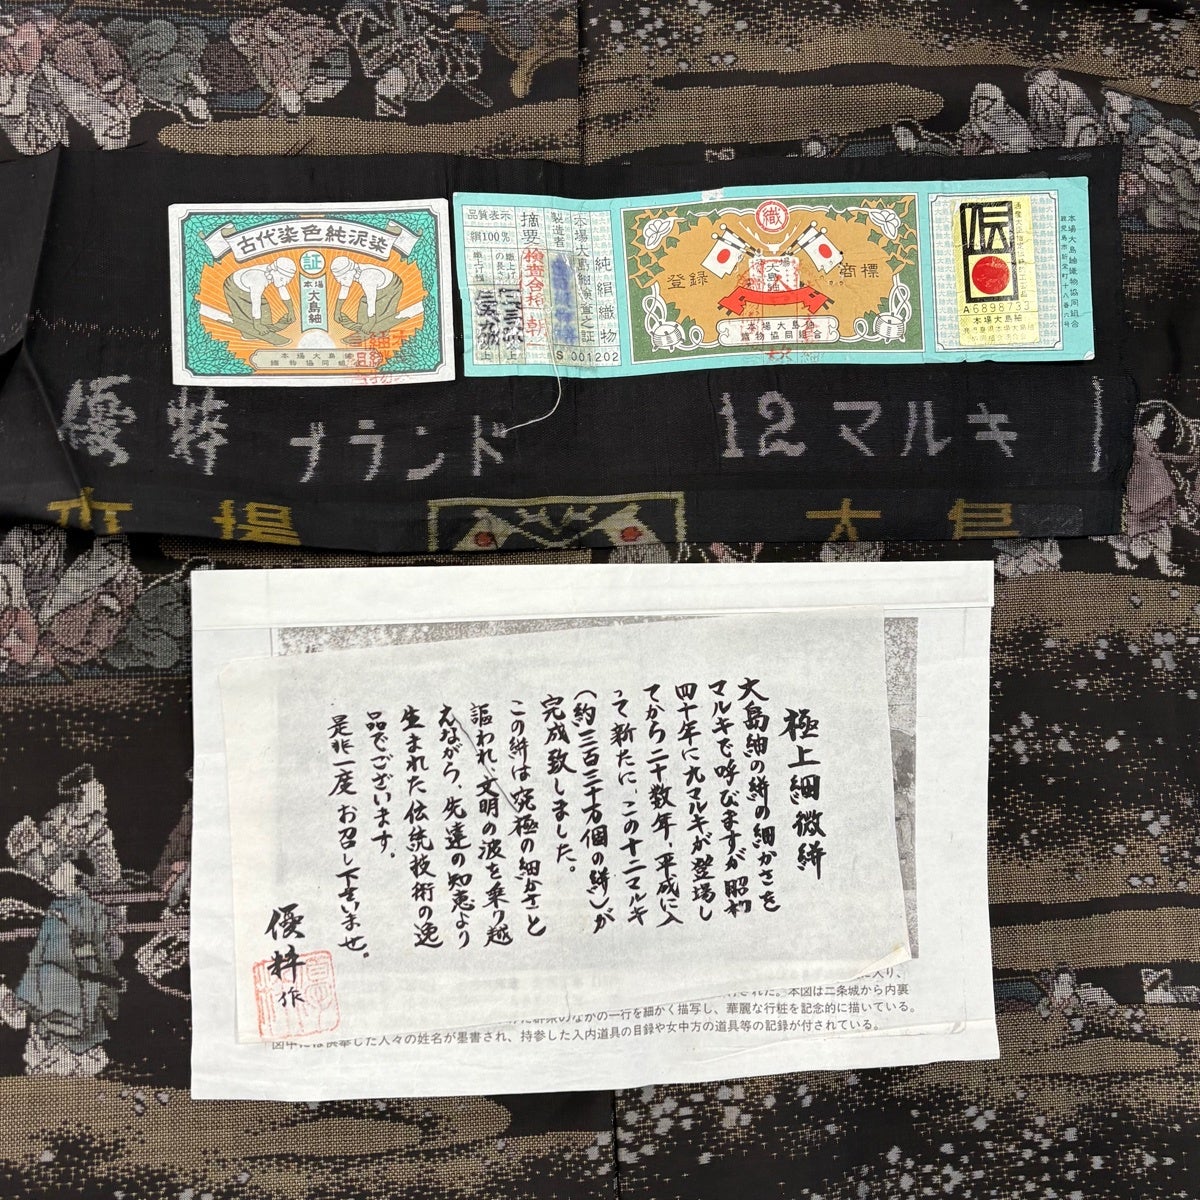 古代染色純泥染
証
本場
大島紬
本場大島紬
織物協同組
品質表示
絹100%
摘要
検査合格
製造者
本場大島紬検査之証
純絹織物
S 001202
織
登録
商標
本場
大島紬
本場大島紬
織物協同組合
本場大島紬織物協同組合
伝
A6898733
本場大島紬
優粋 ブランド
12マルキ
本場
大島
極上細微絣
大島紬の絣の細かさを
マルキで呼びますが昭和
四十年に九マルキが登場し
てから二十数年、平成に入
って新たに、この十二マルキ
(約三百三十万個の絣)が
完成致しました。
この絣は究極の細かさと
謳われ、文明の波を乗り越
えながら、先達の知恵より
生まれた伝統技術の逸
品でございます。
是非一度お召し下さいませ。
優粋作
に入り、
された。本図は二条城から内裏
の一行を細かく描写し、華麗な行粧を記念的に描いている。
した人々の姓名が墨書され、持参した入内道具の目録や女中方の道具等の記録が付されている。